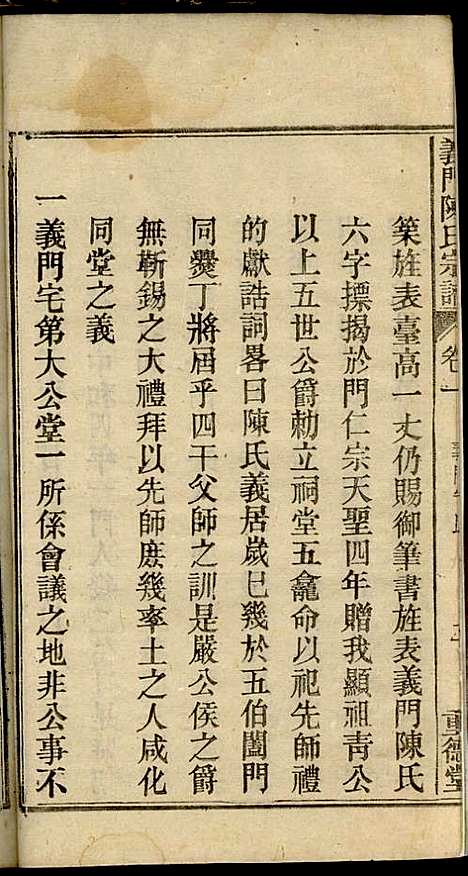 義門陳氏宗譜 卷一
重德堂
築旌表臺高一丈仍賜御筆書旌表義門陳氏
六字摽揭於門仁宗天聖四年贈我顯祖靑公
以上五世公爵勅立祠堂五龕命以祀先師禮
的獻誥詞畧曰陳氏義居歲巳幾於五伯闔門
同爨丁將屆乎四干父師之訓是嚴公侯之爵
無靳錫之大禮拜以先師庶幾率土之人咸化
同堂之義
一義門宅第大公堂一所係會議之地非公事不